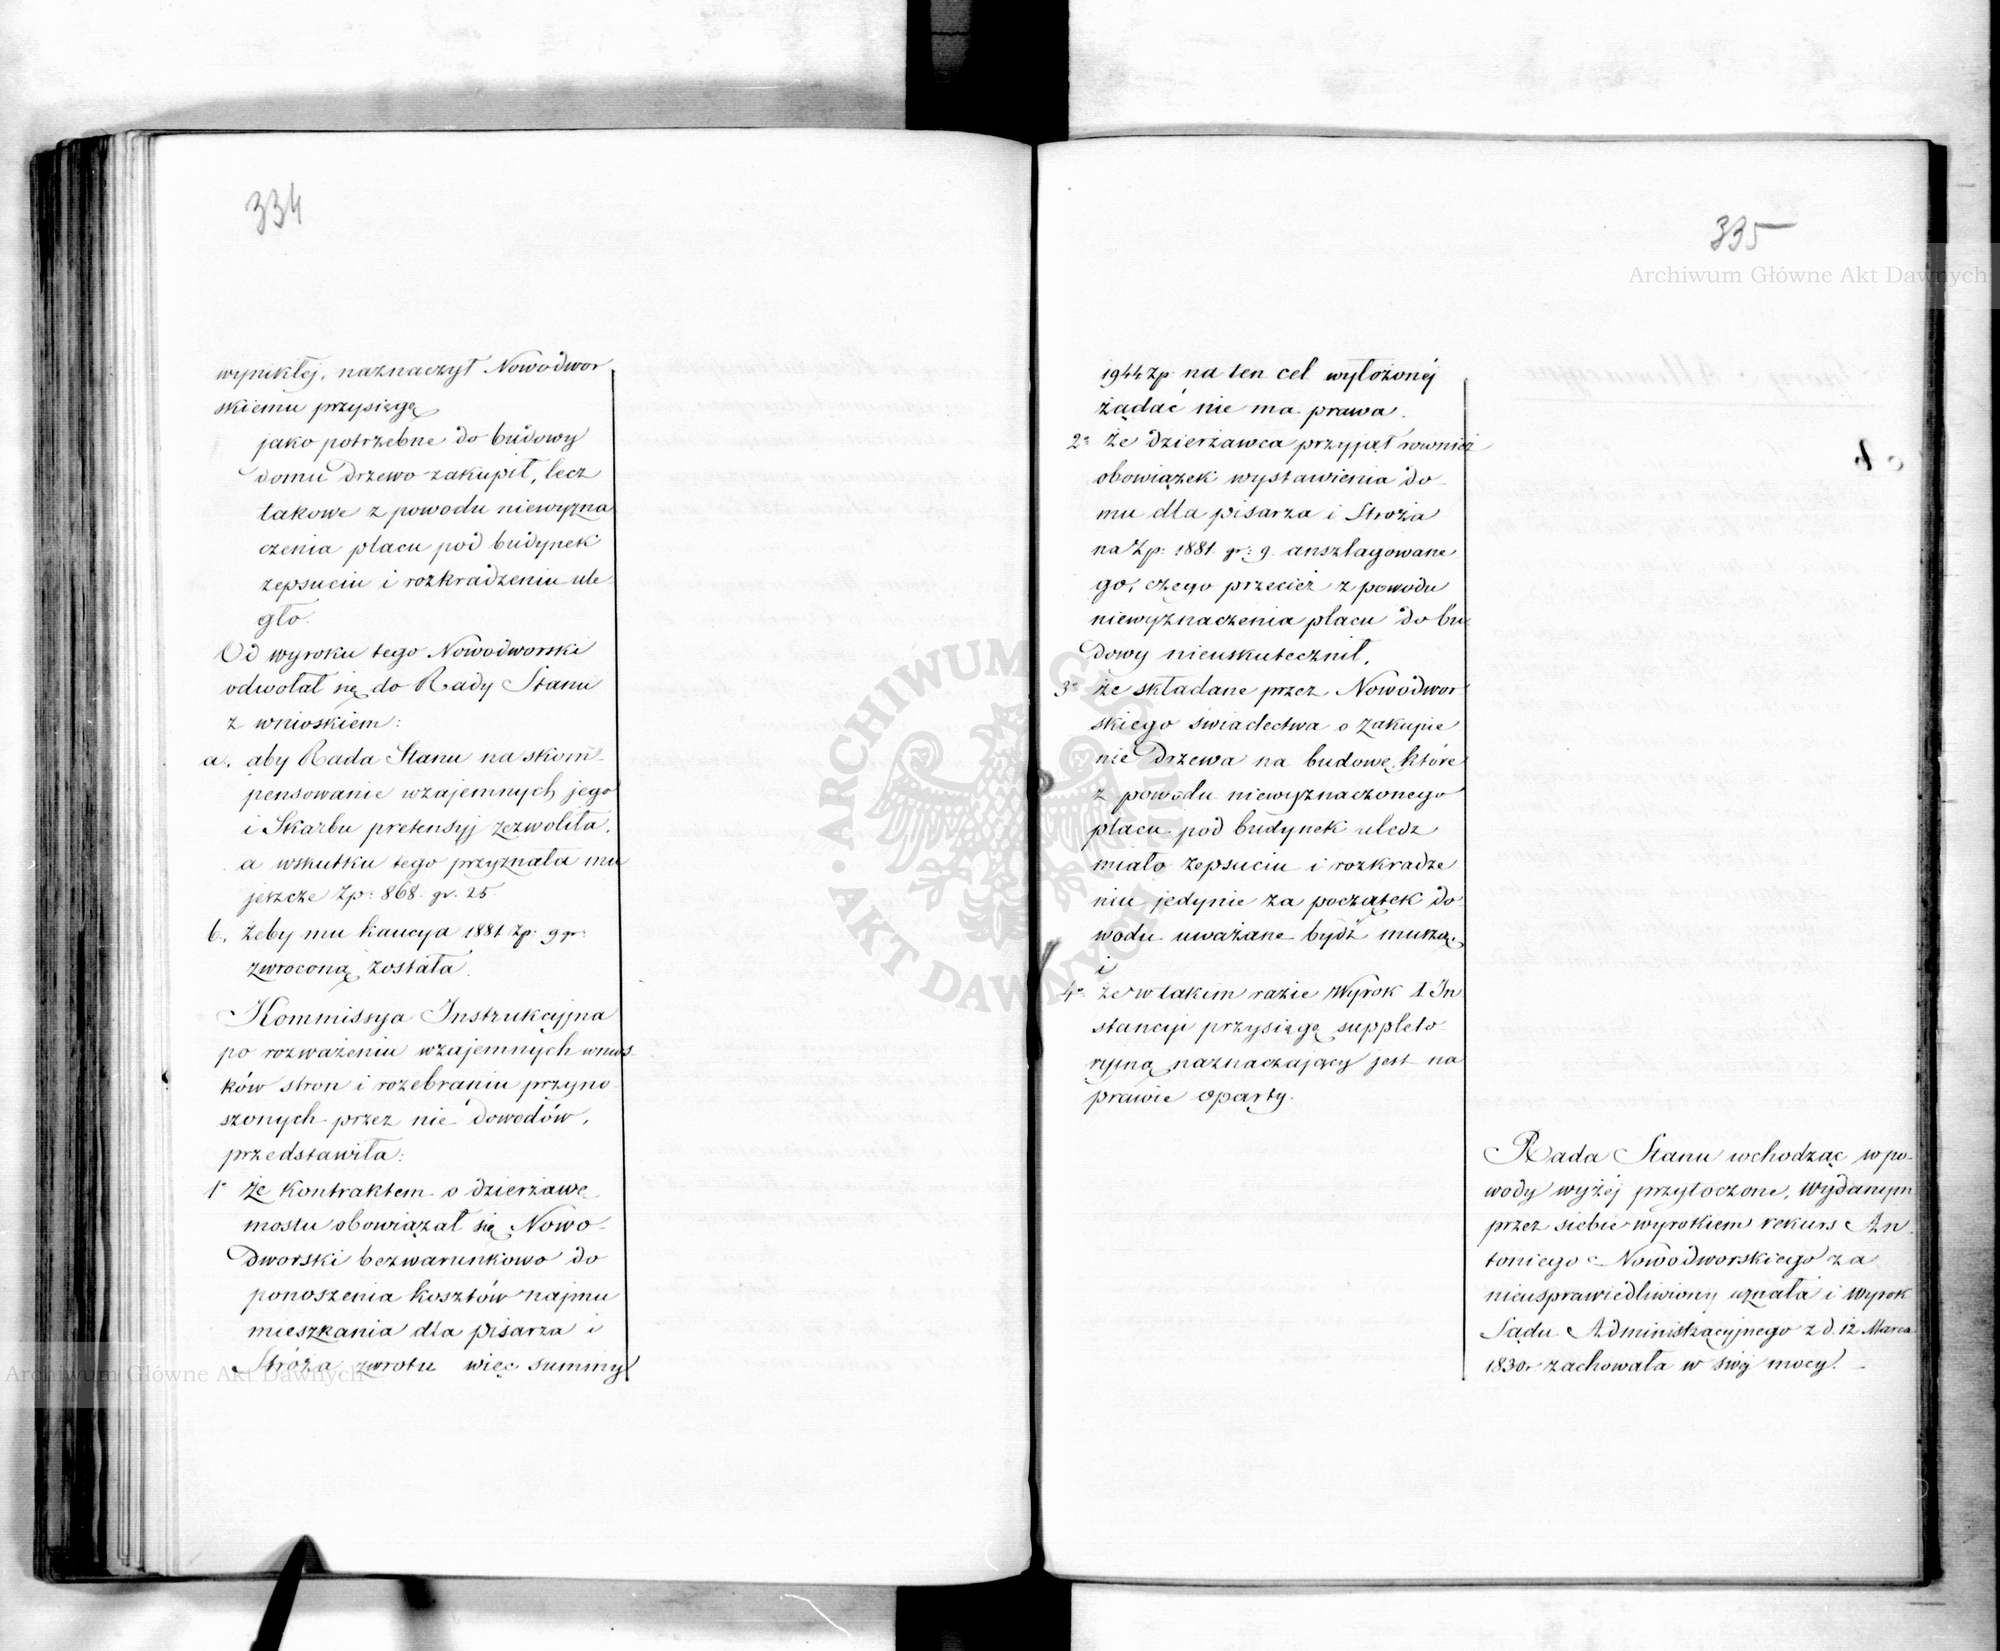 334
wynikłej, naznaczył Nowodwor
skiemu przysięgę
jako potrzebne do budowy
domu Drzewo zakupił, lecz
takowe z powodu niewyzna
czenia placu pod budynek
zepsuciu i rozkradzeniu ule
gło.
Od wyroku tego Nowodworski
odwołał się do Rady Stanu
z wnioskiem:
a. aby Rada Stanu na skom-
pensowanie wzajemnych jego
i Skarbu pretensyj zezwoliła,
a wskutku tego przyznała mu
jeszcze Zp: 868. gr. 25.
b. żeby mu kaucya 1881 Zp. 9 gr:
zwróconą została.
Kommissya Instrukcyjna
po rozważeniu wzajemnych wnios
ków stron i rozebraniu przyno-
szonych przez nie dowodów,
przedstawiła:
1° Że kontraktem o dzierżawę
mostu obowiązał się Nowo-
Dworski bezwarunkowo do
ponoszenia kosztów najmu
mieszkania dla pisarza i
Stróża zwrotu więc summy
335
1944 Zp. na ten cel wyłożonéj
żądać nie ma prawa.
2° że dzierżawca przyjął również
obowiązek wystawienia do-
mu dla pisarza i Stróża
na Zp: 1881. gr: 9. anszlagowane
go, czego przecież z powodu
niewyznaczenia placu do bu
dowy nieuskutecznił.
3° że składane przez Nowodwor
skiego świadectwa o zakupie
nie Drzewa na budowę, które
z powodu niewyznaczonego
placu pod budynek uledz
miało zepsuciu i rozkradze
niu jedynie za początek do
wodu uważane bydź muszą,
i
4° że w takim razie Wyrok I In
stancyi przysięgę suppleto-
ryjną naznaczający jest na
prawie oparty.
Rada Stanu wchodząc w po-
wody wyżéj przytoczone, wydanym
przez siebie wyrokiem rekurs An
toniego Nowodworskiego za
nieusprawiedliwiony uznała i Wyrok
Sądu Administracyjnego z d. 12 Marca
1830 r. zachowała w swéj mocy.
Archiwum Główne Akt Dawnych
Archiwum Główne Akt Dawnych
ARCHIWUM GŁÓWNE AKT DAWNYCH